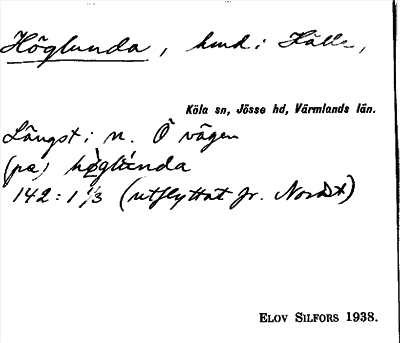 Höglunda, hmd i Hälle,
Köla sn, Jösse hd, Värmlands län.
Längst i n. Ö vägen
(pa) höglùnda
142:1 1/3 (utflyttat fr. Nordt)
ELOV SILFORS 1938.